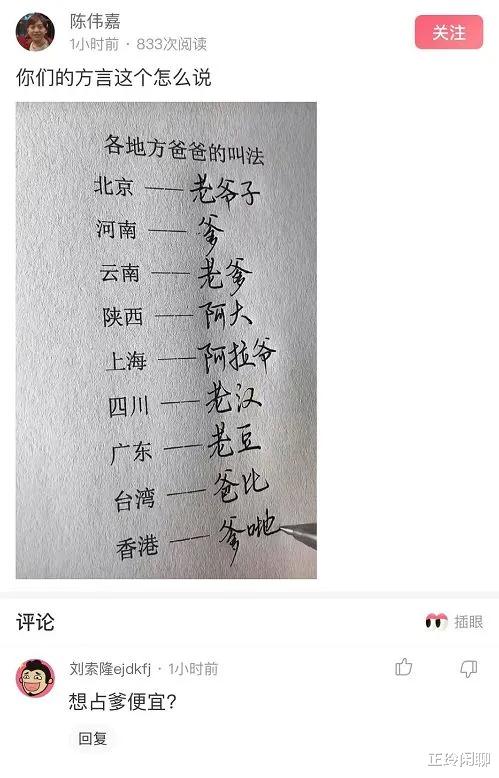 陈伟嘉
1小时前 · 833次阅读
关注
你们的方言这个怎么说
各地方爸爸的叫法
北京 —— 老爷子
河南 —— 爹
云南 —— 老爹
陕西 —— 阿大
上海 —— 阿拉爷
四川 —— 老汉
广东 —— 老豆
台湾 —— 爸比
香港 —— 爹哋
评论
插眼
刘索隆ejdkfj · 1小时前
想占爹便宜?
回复
正玲闲聊